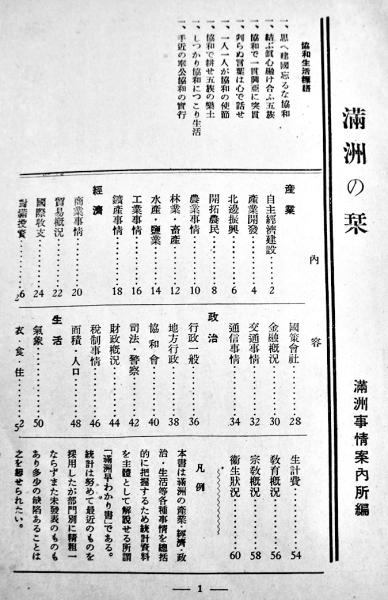 滿洲の栞
滿洲事情案內所編
協和生活標語
一、思へ建國忘るな協和
一、結ぶ眞心融け合ふ五族
一、協和で一貫興亞に突貫
一、判らぬ言葉は心で話せ
一、一人一人が協和の使節
一、協和で耕せ五族の樂土
一、しつかり協和につこり生活
一、手近の奉公協和の實行
內容
產業
自主經濟建設……2
產業開發……4
北邊振興……6
開拓農民……8
農業事情……10
林業・畜產……12
水產・鹽業……14
工業事情……16
鑛產事情……18
經濟
商業事情……20
貿易概況……22
國際收支……24
對滿投資……26
國策會社……28
金融概況……30
交通事情……32
通信事情……34
政治
行政一般……36
地方行政……38
協和會……40
司法・警察……42
財政概況……44
稅制事情……46
面積・人口……48
生活
氣象……50
衣食住……52
生計費……54
教育概況……56
宗敎概況……58
衞生狀況……60
凡例
本書は滿洲の產業・經濟・政
治・生活等各種事情を總括
的に把握するため統計資料
を主體として解說せる所謂
「滿洲早わかり書」である。
統計は努めて最近のものを
採用したが部門別に精粗一
ならずまた未發表のものも
あり多少の缺陷あることは
之を御せられたい。
— 1 —